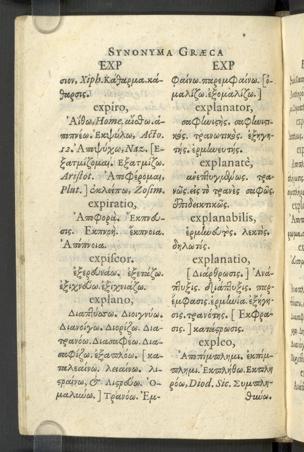 SYNONYMA GRÆCA
EXP
σιον. Xiph. Κάθαρμα. κά-
θαρσις.
expiro,
Αἴθω, Home, ἀΐσθω. ἀ-
ποπνέω. Ἐκψύχω, Acto.
12. Ἀποψύχω, Naz. [Ἐ-
ξατμίζομαι. Ἐξατμίζω.
Aristot. Ἀποφέρομαι,
Plut. ] ἐκλείπω, Zosim.
expiratio,
Ἀποφορά. Ἐκπνευ-
σις. Ἐκπνοή. ἔκπνοια.
Ἀπόπνοια.
expiscor.
ἐξερευνάω. ἐξετάζω.
ἐξιχνεύω. ἐξιχνιάζω.
explano,
Διαπτύσσω. Διοιγνύω.
Διανοίγω. Διορίζω. Δια-
τρανόω. Διασαφέω. Δια-
σαφίζω. ἐξαπλόω. [ κα-
ταλεαίνω. λειαίνω. λι-
μαλίζω. ] Τρανόω. Ἐμ-
EXP
φαίνω. παρεμφαίνω. [ὁ-
μαλίζω. ἐξομαλίζω. ]
explanator,
σαφωνιστής. σαφωνιστι-
κός. τρανωτικός. ἐξηγη-
τής. ἑρμηνευτής.
explanatè,
τρα-
νῶς. εἰς τὸ τρανὲς σαφῶς.
ἐπιδεικτικῶς.
explanabilis,
λεκτός.
δηλωτός.
explanatio,
[ Διάρθρωσις. ] Ἀνά-
πτυξις. διάπτυξις. παρ-
έμφασις. ἑρμηνία. ἐξήγη-
σις. τρανότης. [ Ἔκφρα-
σις. ] κατάστρωσις.
expleo,
Ἀποπίμπλημι. ἐκπίμ-
πλημι. Ἐκπληθω. Ἐκπλη-
ρόω, Diod. Sic. Συμπλη-
θύνω.